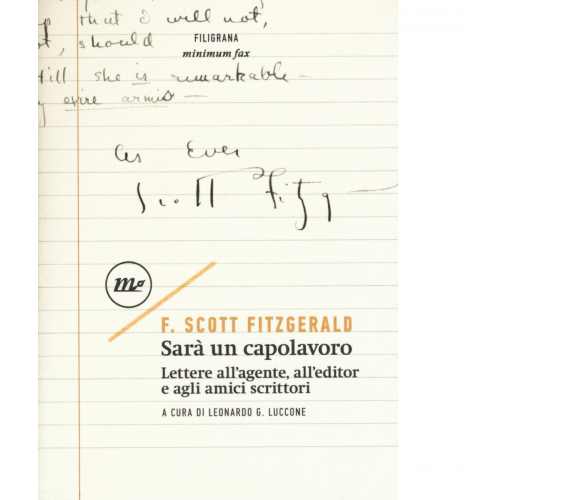 that I will not,
, should
FILIGRANA
minimum fax
till she is remarkable –
entre armis –
As Ever
Scott Fitzg
m
F. SCOTT FITZGERALD
Sarà un capolavoro
Lettere all'agente, all'editor
e agli amici scrittori
A CURA DI LEONARDO G. LUCCONE